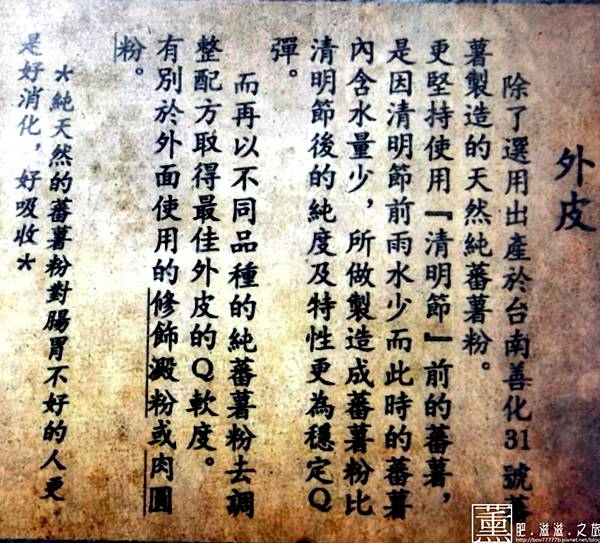 外皮
除了選用出產於台南善化31號蕃
薯製造的天然純蕃薯粉。
更堅持使用『清明節』前的蕃薯，
是因清明節前雨水少而此時的蕃薯
內含水量少，所做製造成蕃薯粉比
清明節後的純度及特性更為穩定Q
彈。
而再以不同品種的純蕃薯粉去調
整配方取得最佳外皮的Q軟度。
有別於外面使用的修飾澱粉或肉圓
粉。
＊純天然的蕃薯粉對腸胃不好的人更
是好消化，好吸收＊
薰 肥.滋滋.之旅
http://bov77777b.pixnet.net/blog